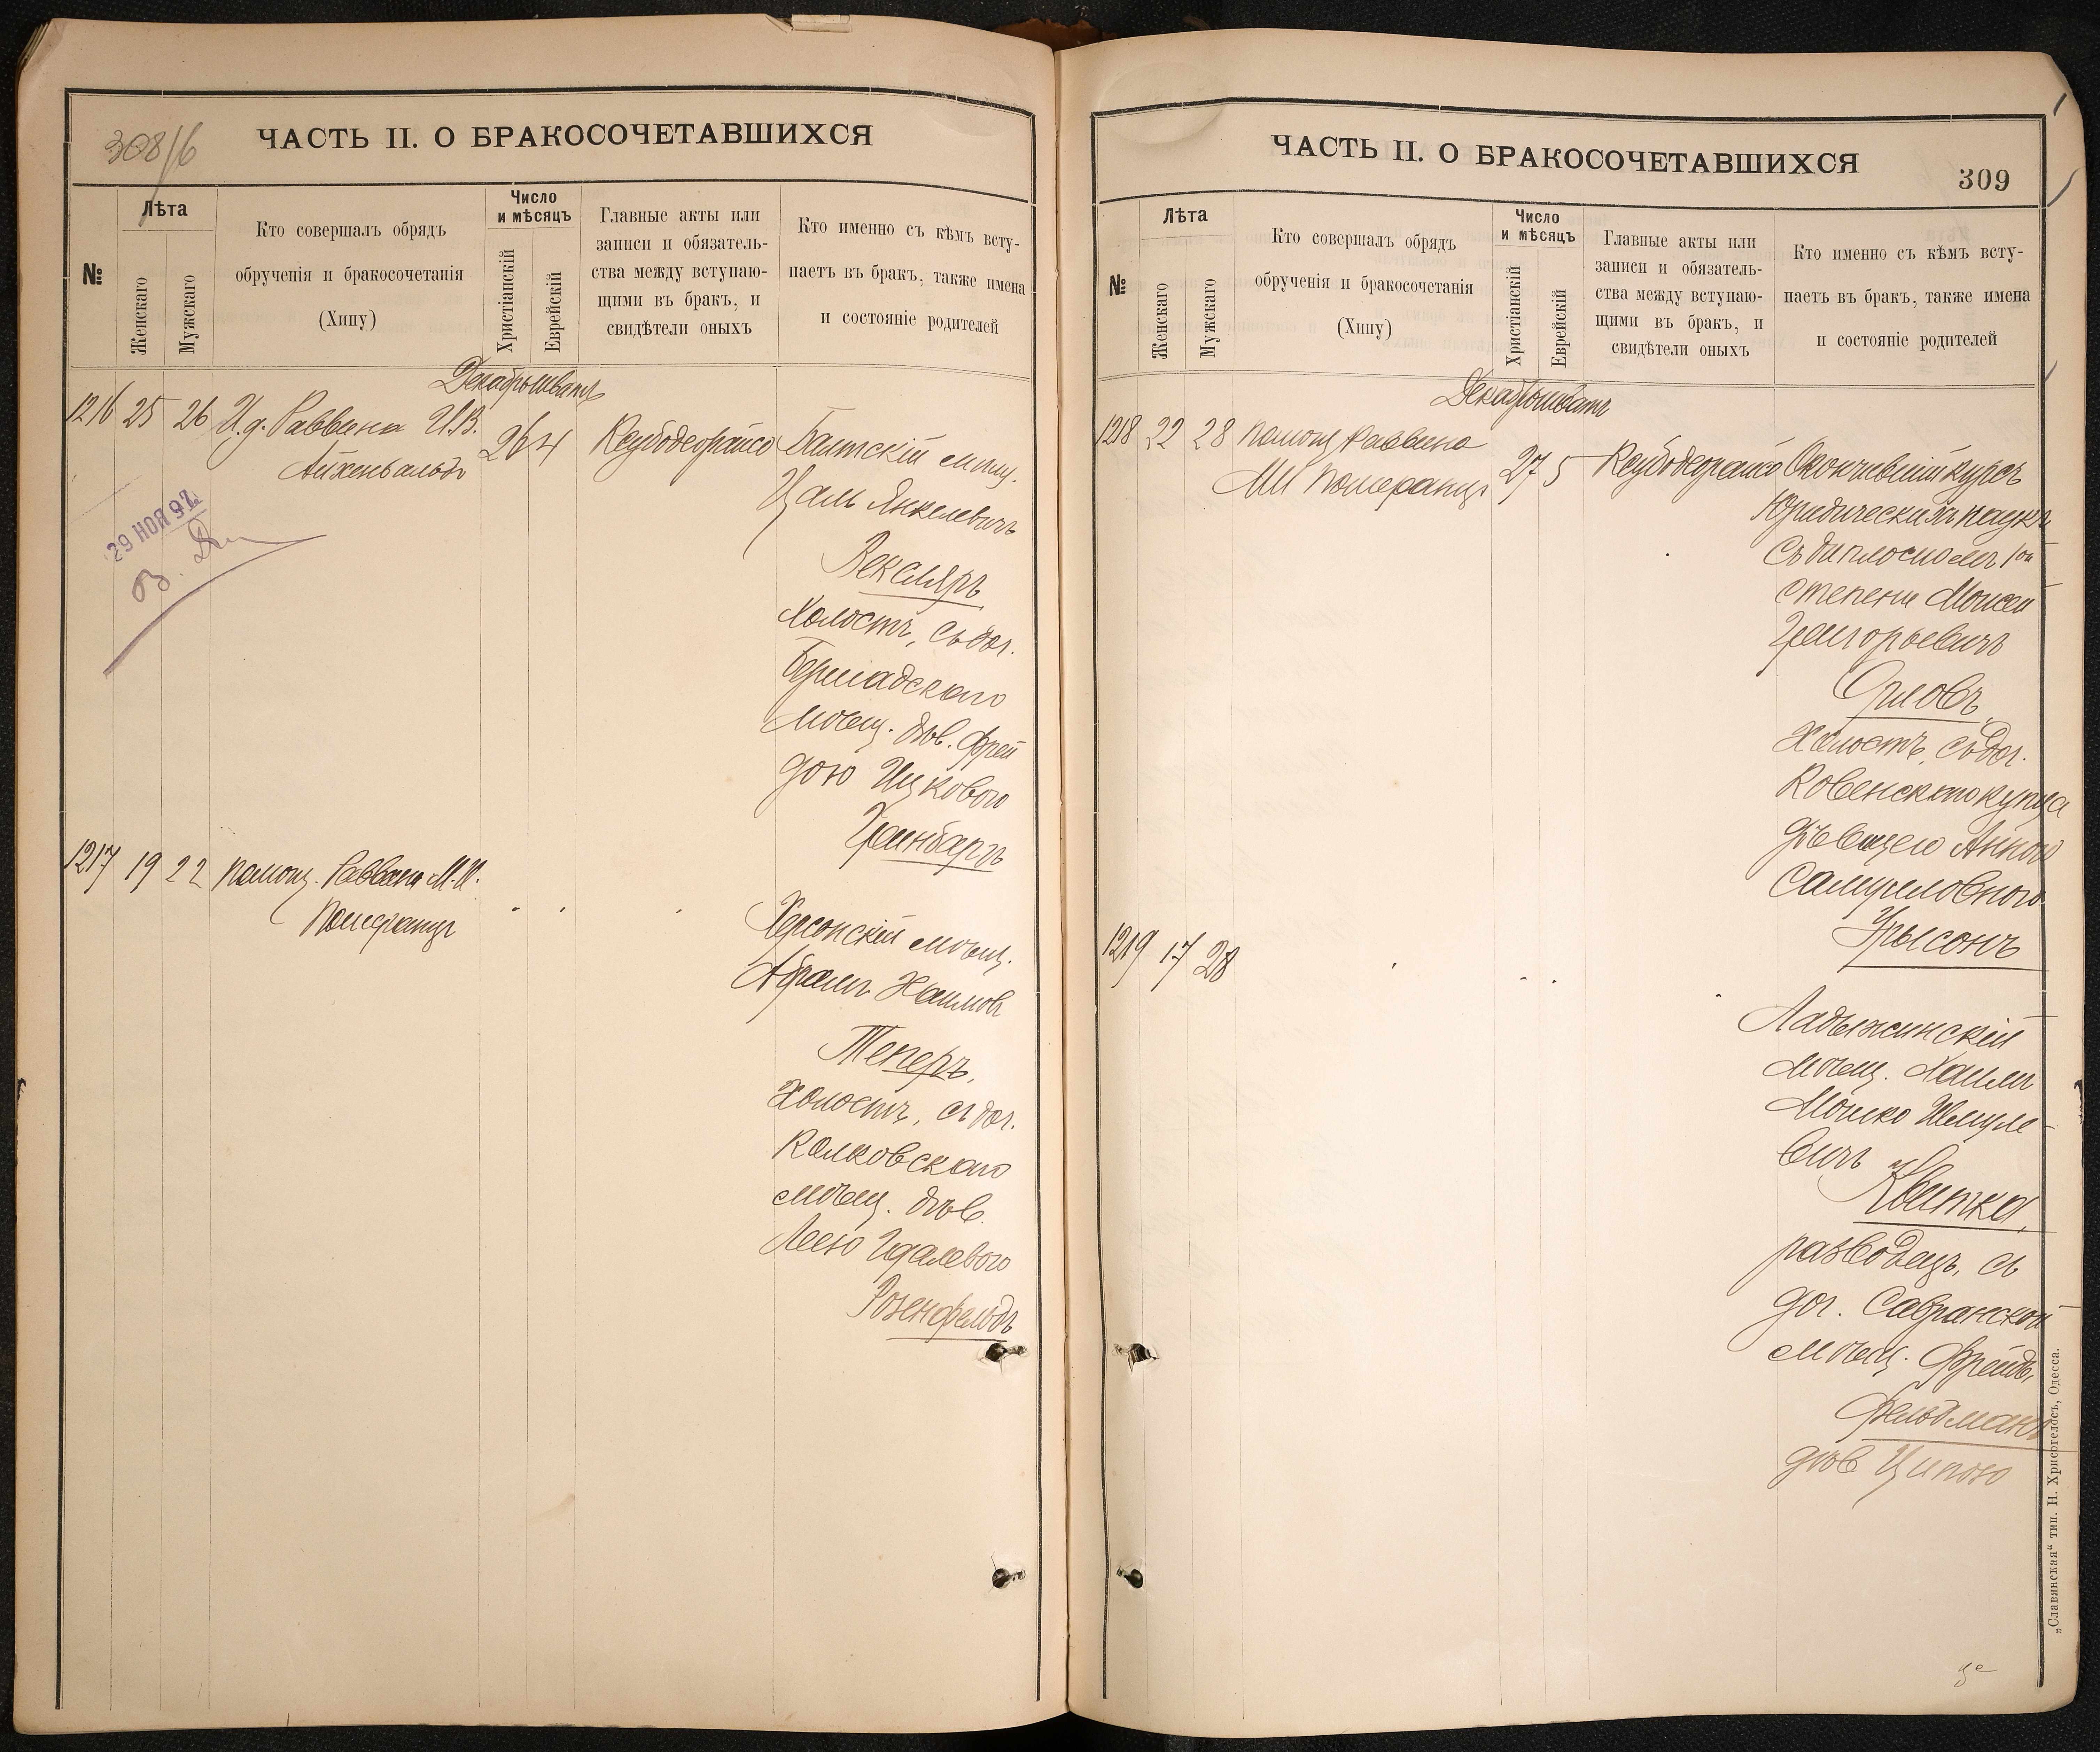 308/6
ЧАСТЬ II. О БРАКОСОЧЕТАВШИХСЯ
№
Лѣта
Женскаго
Мужскаго
Кто совершалъ обрядъ
обрученія и бракосочетанія
(Хипу)
Число
и мѣсяцъ
Христіанскій
Еврейскій
Главные акты или
записи и обязатель-
ства между вступаю-
щими въ бракъ, и
свидѣтели оныхъ
Кто именно съ кѣмъ всту-
паетъ въ бракъ, также имена
и состояніе родителей
Декабрь Шватъ
1216 25 26 И.д. Раввина И.В.
Айхенвальдъ
26 4
Балтскій мѣщ.
Цаль Янкелевичъ
Векслярь
Холостъ, съ доч.
Бершадского
мѣщ. дѣв. Фрей
дою Ицкового
Гринбаргъ
29 НОЯ 97
1217 19 22 Помощ. Раввина М.И.
Померанцъ
Херсонскій мѣщ.
Абрамъ Хаимов
Теперъ,
Холостъ, съ доч.
Колковского
мѣщ. дѣв.
Леею Гдалевого
Розенфельдъ
ЧАСТЬ II. О БРАКОСОЧЕТАВШИХСЯ
309
№
Лѣта
Женскаго
Мужскаго
Кто совершалъ обрядъ
обрученія и бракосочетанія
(Хипу)
Число
и мѣсяцъ
Христіанскій
Еврейскій
Главные акты или
записи и обязатель-
ства между вступаю-
щими въ бракъ, и
свидѣтели оныхъ
Кто именно съ кѣмъ всту-
паетъ въ бракъ, также имена
и состояніе родителей
Декабрь Шватъ
1218 22 28 Помощ Раввина
М И Померанцъ
27 5
Окончившій курсъ
Юридическихъ наукъ
съ дипломомъ 1ой
степени Моисей
Григорьевичъ
Орловъ,
Холостъ, съ доч.
Ковенского купца
дѣвицею Анною
Самуиловного
Урысонъ
1219 17 28
Ладыжинскій
мѣщ. Хаимъ
Мошко Шмуле-
вичъ
Квитка,
разводецъ, съ
доч. Савранской
мѣщ. Фрейды
Фельдманъ
дѣв Ципою
„Славянская“ тип. Н. Хрисогелосъ, Одесса.